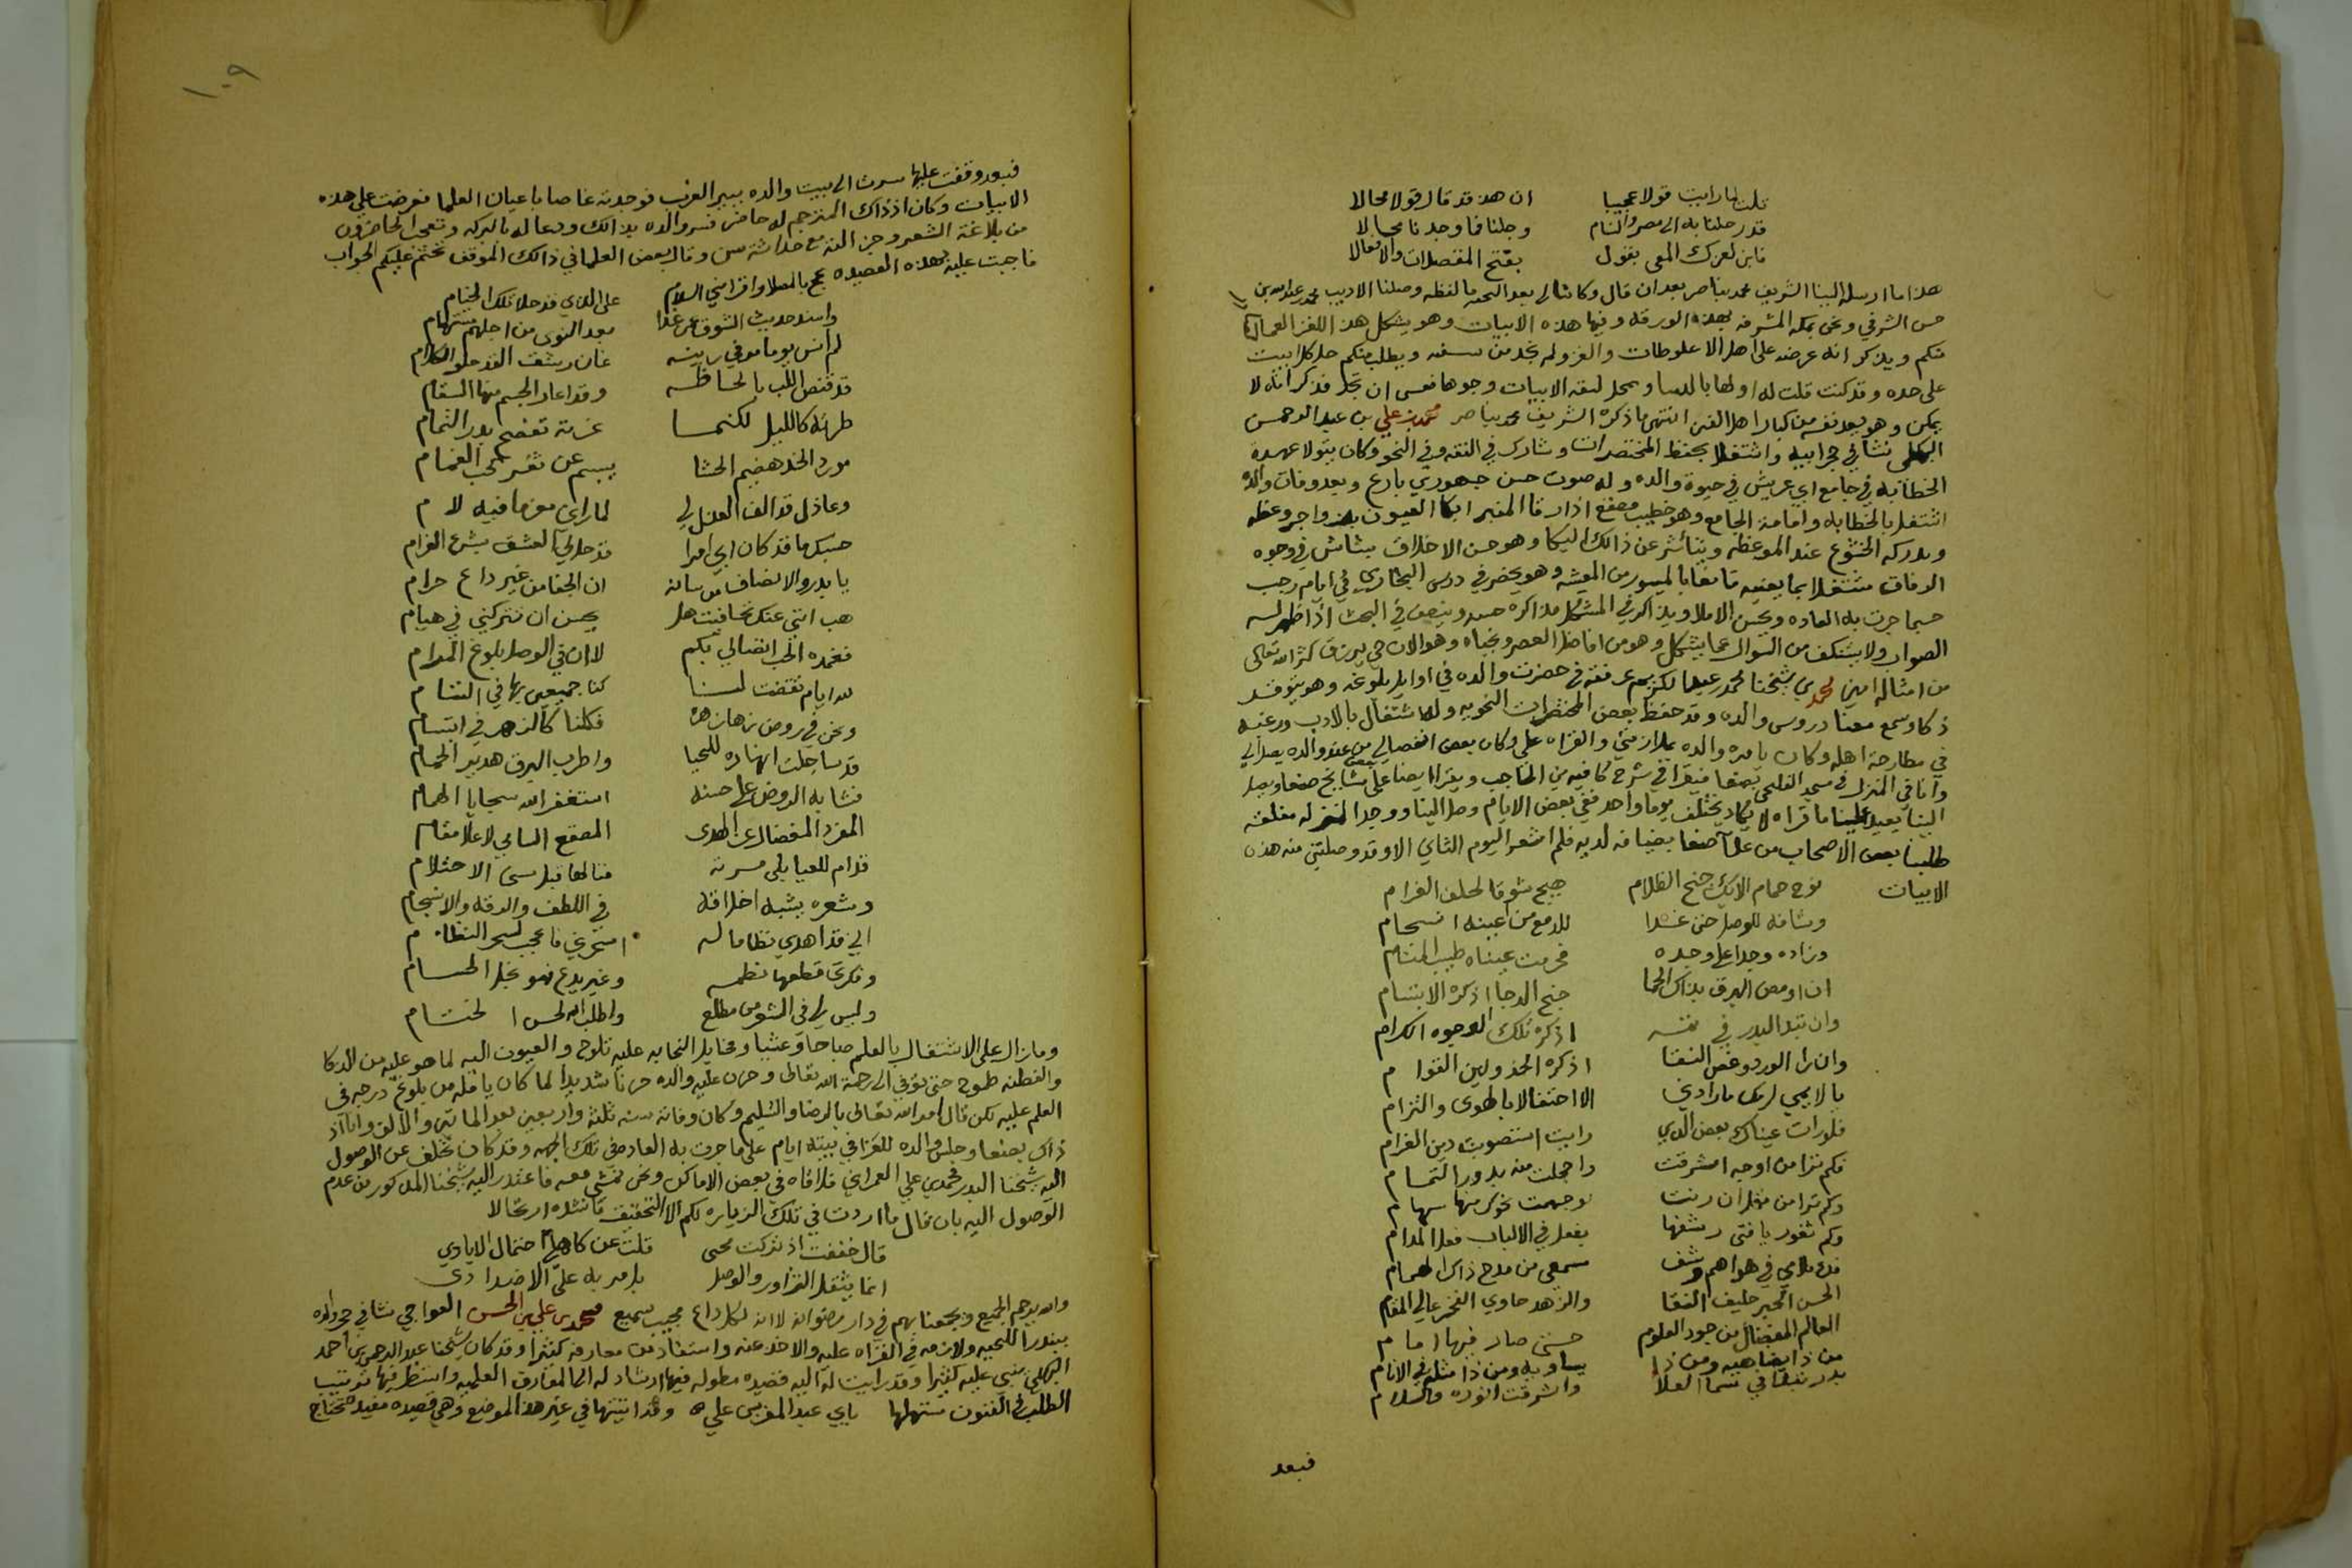 قلت لما رايت قولا عجيبا ان هذ قد قال قولا محالا
قد رحلنا به الى مصر والشام وجلنا فما وجدنا مجالا
فابن لعزك المعى بقول يفتح المقفلات والاقفالا
هذا ما ارسله الينا الشريف محمد بن ناصر بعد ان قال وكاتنا لي بعد التحيه ما لفظه وصلنا الاديب محمد عبد الله بن
حسن الشرفي ونحن بمكه المشرفه بهذه الورقه وفيها هذه الابيات وهو يشكل هذ اللغز العمال
منكم ويذكر انه عرضه على اهل الاغلوطات والغز ولم يجد من سفه ويطلب منكم حل كل بيت
على حده وقد كنت قلت له اولها بالدسا ومحل لبقه الابيات وجوها فعسى ان تجد فذكر انه لا
يمكن وهو يعد نفسه من كبار اهل الفن انتهى ما ذكره الشريف محمد بن ناصر محمد بن علي بن عبد الرحمن
البهكلي نشا في حجر ابيه واشتغل بحفظ المختصرات وشارك في الفقه وفي النحو وكان يتولا عهدة
الخطابه في جامع ابي عريش في حيوة والده وله صوت حسن جهوري بارع وبعد وفات والده
اشتغل بالخطابه واقامة الجامع وهو خطيب مصقع اذا رقا المنبر ابكا العيون بزواجر وعظه
ويدركه الخشوع عند الموعظه ويتأثر عن ذالك البكا وهو حسن الاخلاق بشاش في وجوه
الرفاق مشتغلا بما يعنيه قانعا بالميسور من المعيشه وهو يحضر في درس البخاري في ايام رجب
حسبما جرت به العاده ويحسن الاملا ويذاكر في المشكل مذاكره حسنه وينصف في البحث اذا ظهر له
الصواب ولا يستنكف من السوال عما يشكل وهو من افاضل العصر ونجباه وهو الان حي يرزق كثر الله تعالى
من امثاله امين محمد بن شيخنا محمد عبد الكريم عرفته في حضرت والده في اوايل بلوغه وهو يتوقد
ذكا وسمع معنا دروس والده وقد حفظ بعض المختصرات النحويه وله اشتغال بالادب ورغبه
في مطارحة اهله وكان يامره والده بملازمتي والقراه علي وكان بعض انفصالي من عند والده يصل الي
وانا في المنزل في مسجد الفليحي بصنعا فيقرا في شرح كافيه بن الحاجب ويقرا ايضا على بعض مشايخ صنعا ويصل
الينا يعيد علينا ما قراه لا يكاد يختلف يوما واحد ففي بعض الايام وصل الينا ووجد المنزله مغلقه
طلبنا بعض الاصحاب من علما صنعا بضيافه لديه فلم اشعر اليوم الثاني الا وقد وصلتني منه هذه
الابيات نوح حمام الايك جنح الظلام هيج شوقا لحلف الغرام
وشاقه للوصل حتى غدا للدمع من عينه انسجام
وزاده وجدا على وجده فحرمت عيناه طيب المنام
ان اومض البرق بذاك الحما جنح الدجا اذكره الابتسام
وان تبد البدر في تمه اذكره تلك الوجوه الكرام
وان را الورد وغض النقا اذكره الخد ولين القوام
يا لايمي لر ما رادني الا احتفالا بالهوى والتزام
فلو رات عيناك بعض الذي رايت استصوبت دين الغرام
فكم ترا من اوجه اشرقت واخجلت منه بدور التمام
وكم ترا من غزلان رنت توجهت نحوك منها سهام
وكم ثغور يا فتى رشفها يفعل في الالباب فعل المدام
فدع ملامي في هواهم وشنف سمعي من مدح ذاك الهمام
الحسن الحبر حليف التقا والزهد حاوي الفخر عالي المقام
العالم المفضال من جود العلوم حتى صار فيها امام
من ذا يضاهيه ومن ذا يساويه ومن ذا مثله في الانام
بدر تبدا في سما العلا واشرقت انوره والسلام
فبعد
١٠٩
فبعد وقفت عليها سرت الى بيت والده ببير العزب فوجدته غاصا باعيان العلما فعرضت على هذه
الابيات وكان اذ ذاك المترجم له حاضر فسر والده بذالك ودعا له بالبركه وتعجب الحاضرون
من بلاغة الشعر وجزالته مع حداثة سن وقال بعض العلما في ذالك الموقف تحتم عليكم الجواب
فاجبت عليه بهذه القصيده عج بالمصلا واقر مني السلام على الذي قد حلا تلك الخيام
واسند حديث الشوق عن غدا بعد النوى من اجلهم مستهام
لم انس يوما مر في ريته غان رشيق القد حلو الكلام
قد قنص اللب بالحاظه وقد اعار الجسم منها السقام
طرته كالليل لكنما غرته تفضح بدر التمام
مورد الخد هضيم الحشا يبسم عن ثغر كحب الغمام
وعاذل قد الف العذل لي لما راي من ما فيه لام
حسبك ما قد كان ابي امرا قد حل لي العشق بشرع الغرام
يا بدر والانصاف من شانه ان الجفا من غير داع حرام
هب انني عنك تجافيت هل يحسن ان تتركني في هيام
فعمدة الحب اتصالي بكم لا ان في الوصل بلوغ المرام
لله ايام تقضت لنا كنا جميعين بها في التئام
ونحن في روض زهازهره فكلنا كالزهر في ابتسام
قد ساجلت انهاره للحيا واطرب البرق هدير الحمام
فشابه الروض على حسنه استغفر الله سجايا الهمام
المفرد المفضال عز الهدى المصقع السامي لاعلا مقام
قد ام للعليا بلى مرية فنالها قبل سن الاحتلام
وشعره يشبه اخلاقه في اللطف والرقه والانسجام
الي قد اهدى نظاما له اسحرني فاعجب لسحر النظام
وفكرتي قطعها نظمه وغير بدع فهو نجل الحسام
وليس لي في الشعر من مطلع واطلب الله لحسن الختام
وما زال على الاشتغال بالعلم صباحا وعشيا ومخايل النجابه عليه تلوح والعيون اليه لما هو عليه من الذكا
والفطنه طموح حتى توفي الى رحمة الله تعالى وحزن عليه والده حزنا شديدا لما كان يامله من بلوغ درجه في
العلم عليه لكن قابل امر الله تعالى بالرضا والتسليم وكان وفاته سنه ثلثه واربعين بعد الماتين والالف وانا اذ
ذاك بصنعا وجلس والده للعزا في بيته ايام على ما جرت به العاده في تلك الجهه وقد كان تخلف عن الوصول
اليه شيخنا البدر محمد بن علي العمراني فلاقاه في بعض الاماكن ونحن نمشي معه فاعتذر اليه شيخنا المذكور من عدم
الوصول اليه بان قال ما اردت في تلك الزياره لكم الا التخفيف فانشده ارتجالا
قال خففت اذ تركت مجيى قلت عن كاهلي احتمال الايادي
انما يثقل التزاور والوصل بامر به على الاضدادي
والله يرحم الجميع ويجمعنا بهم في دار رضوانه لا انه لكل داع مجيب سميع محمد بن علي بن الحسن العواجي نشا في حجر والده
ببندر اللحيه ولازمه في القراه عليه والاخذ عنه واستفاد من معارفه كثيرا وقد كان شيخنا عبد الرحمن بن احمد
البهكلي يثني عليه كثيرا وقد رايت له اليه قصيده مطوله فيها ارشاد له الى المعارف العلميه وانتظر فيها ترتيب
الطلب في الفنون مستهلها يا بي عبد العزيز علي وقد اثبتها في غير هذ الموضع وهي قصيده مفيده تحتاج